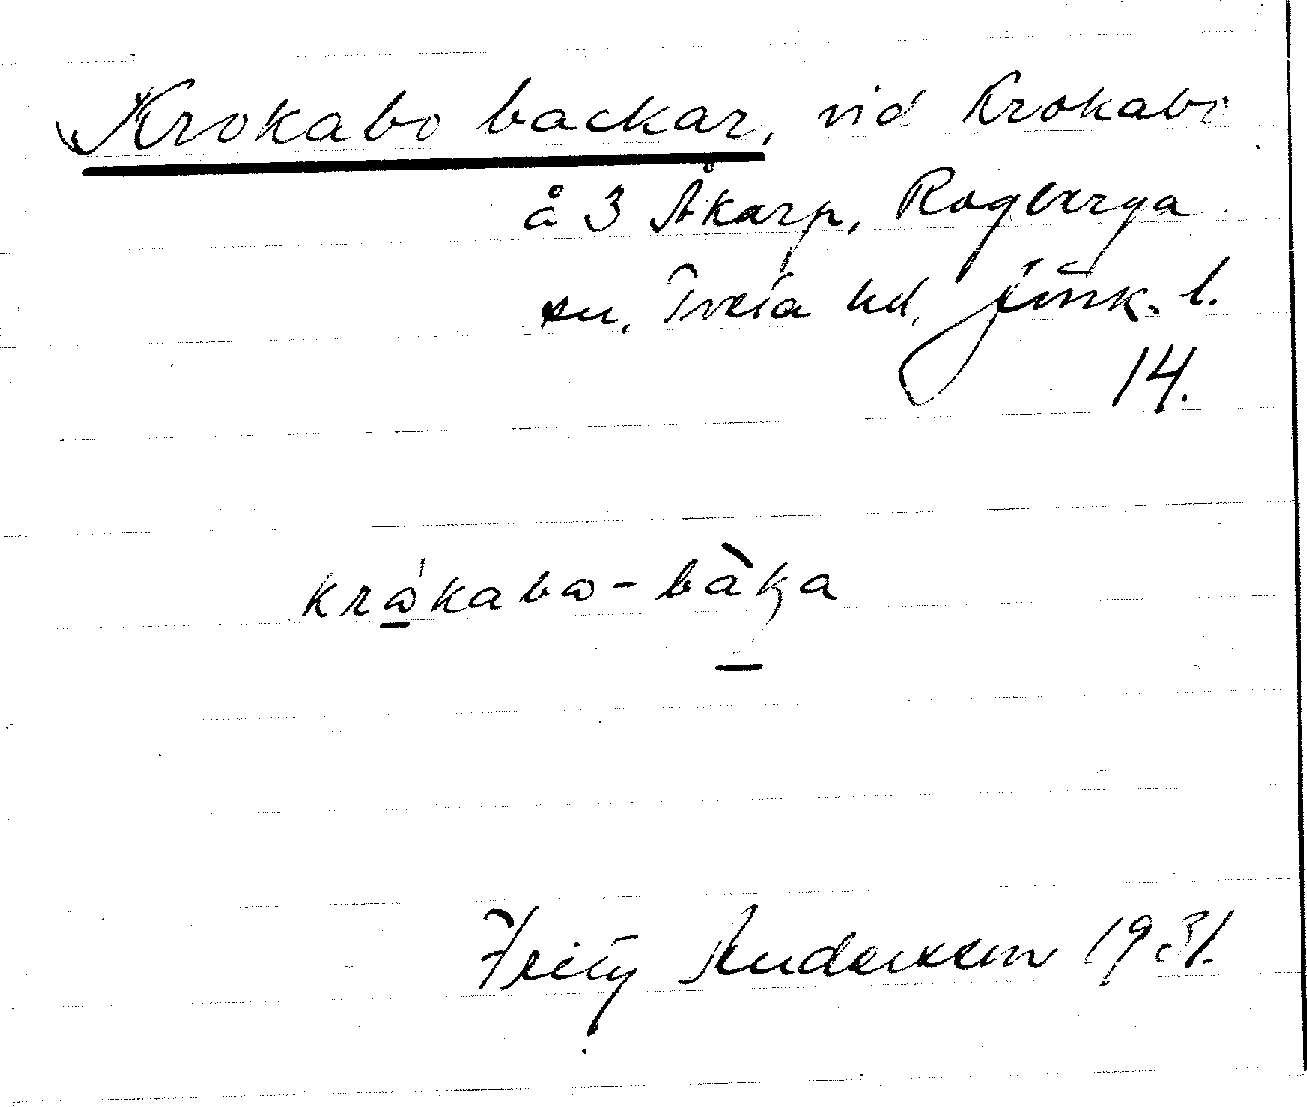 Krokabo backar, vid Krokabo
å 3 Åkarp, Rogberga
sn, Tveta hd, Jönk. l.
14.
krωkabω-bàka
Fritz Andersson 1931.